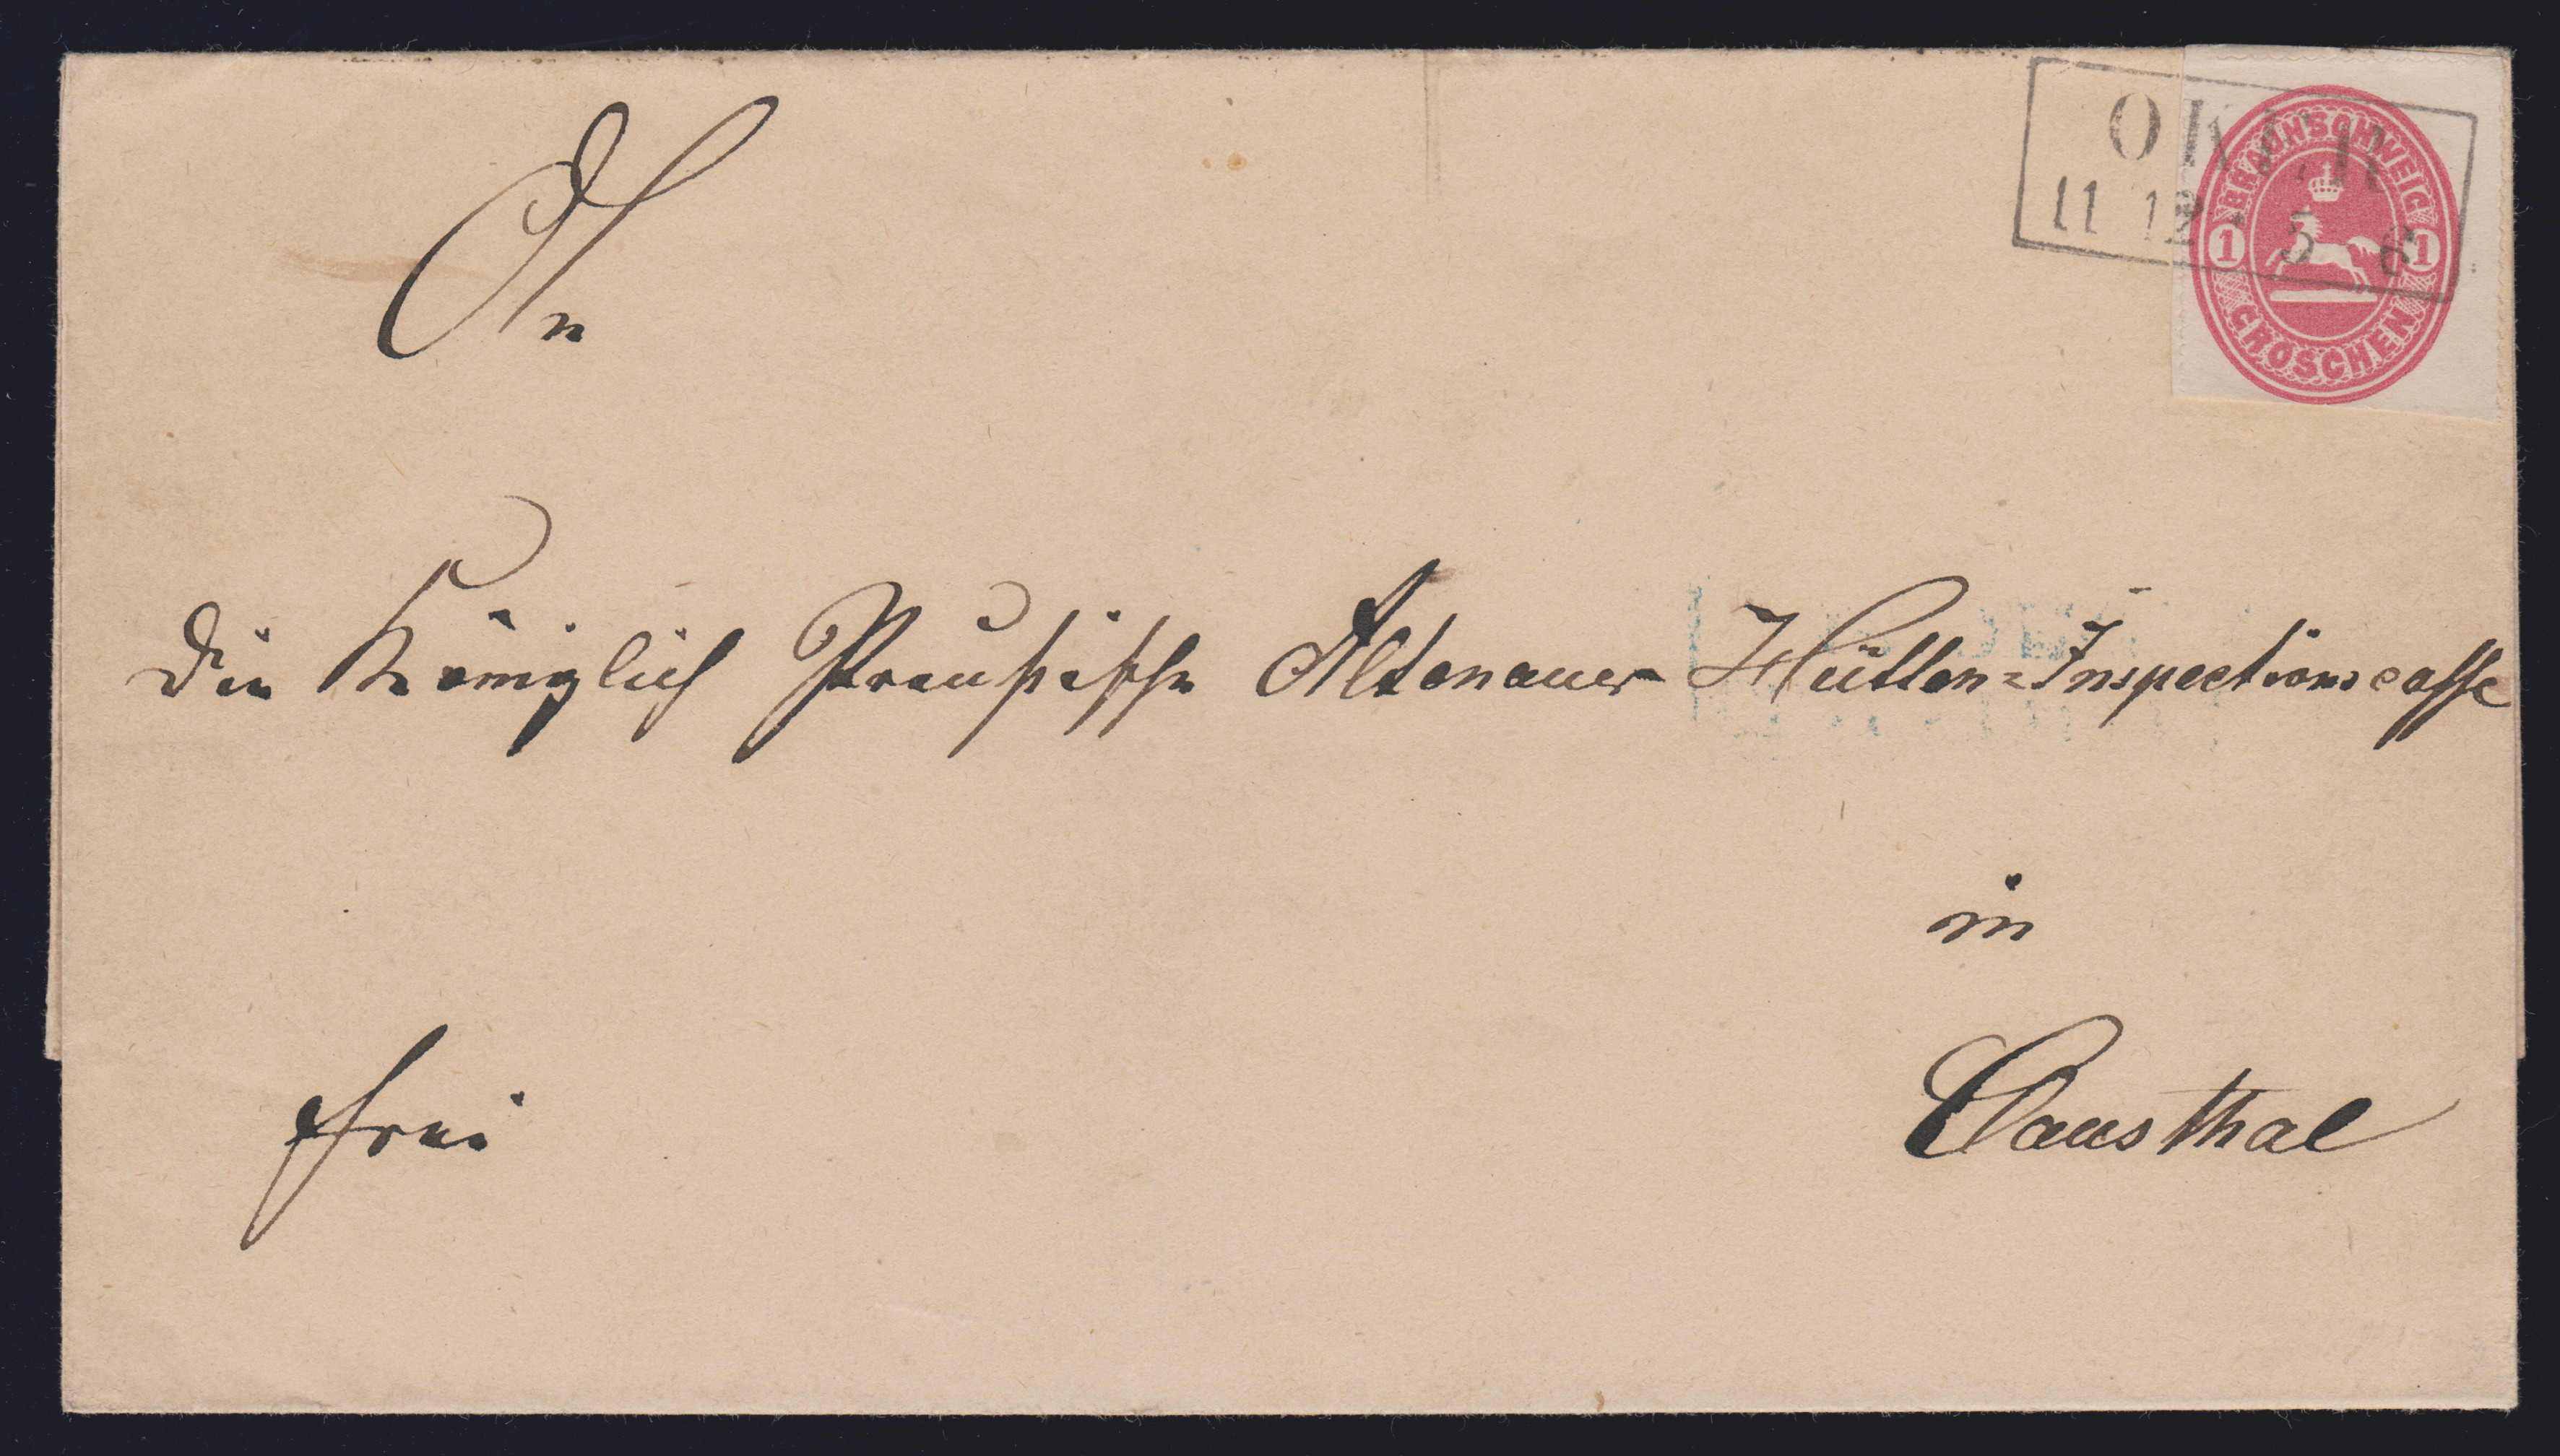 OKER
11 12 5 6
BRAUNSCHWEIG
1 1
GROSCHEN
An
die Königlich Preußische Altenauer Hütten=Inspectionscasse
in
frei
Clausthal